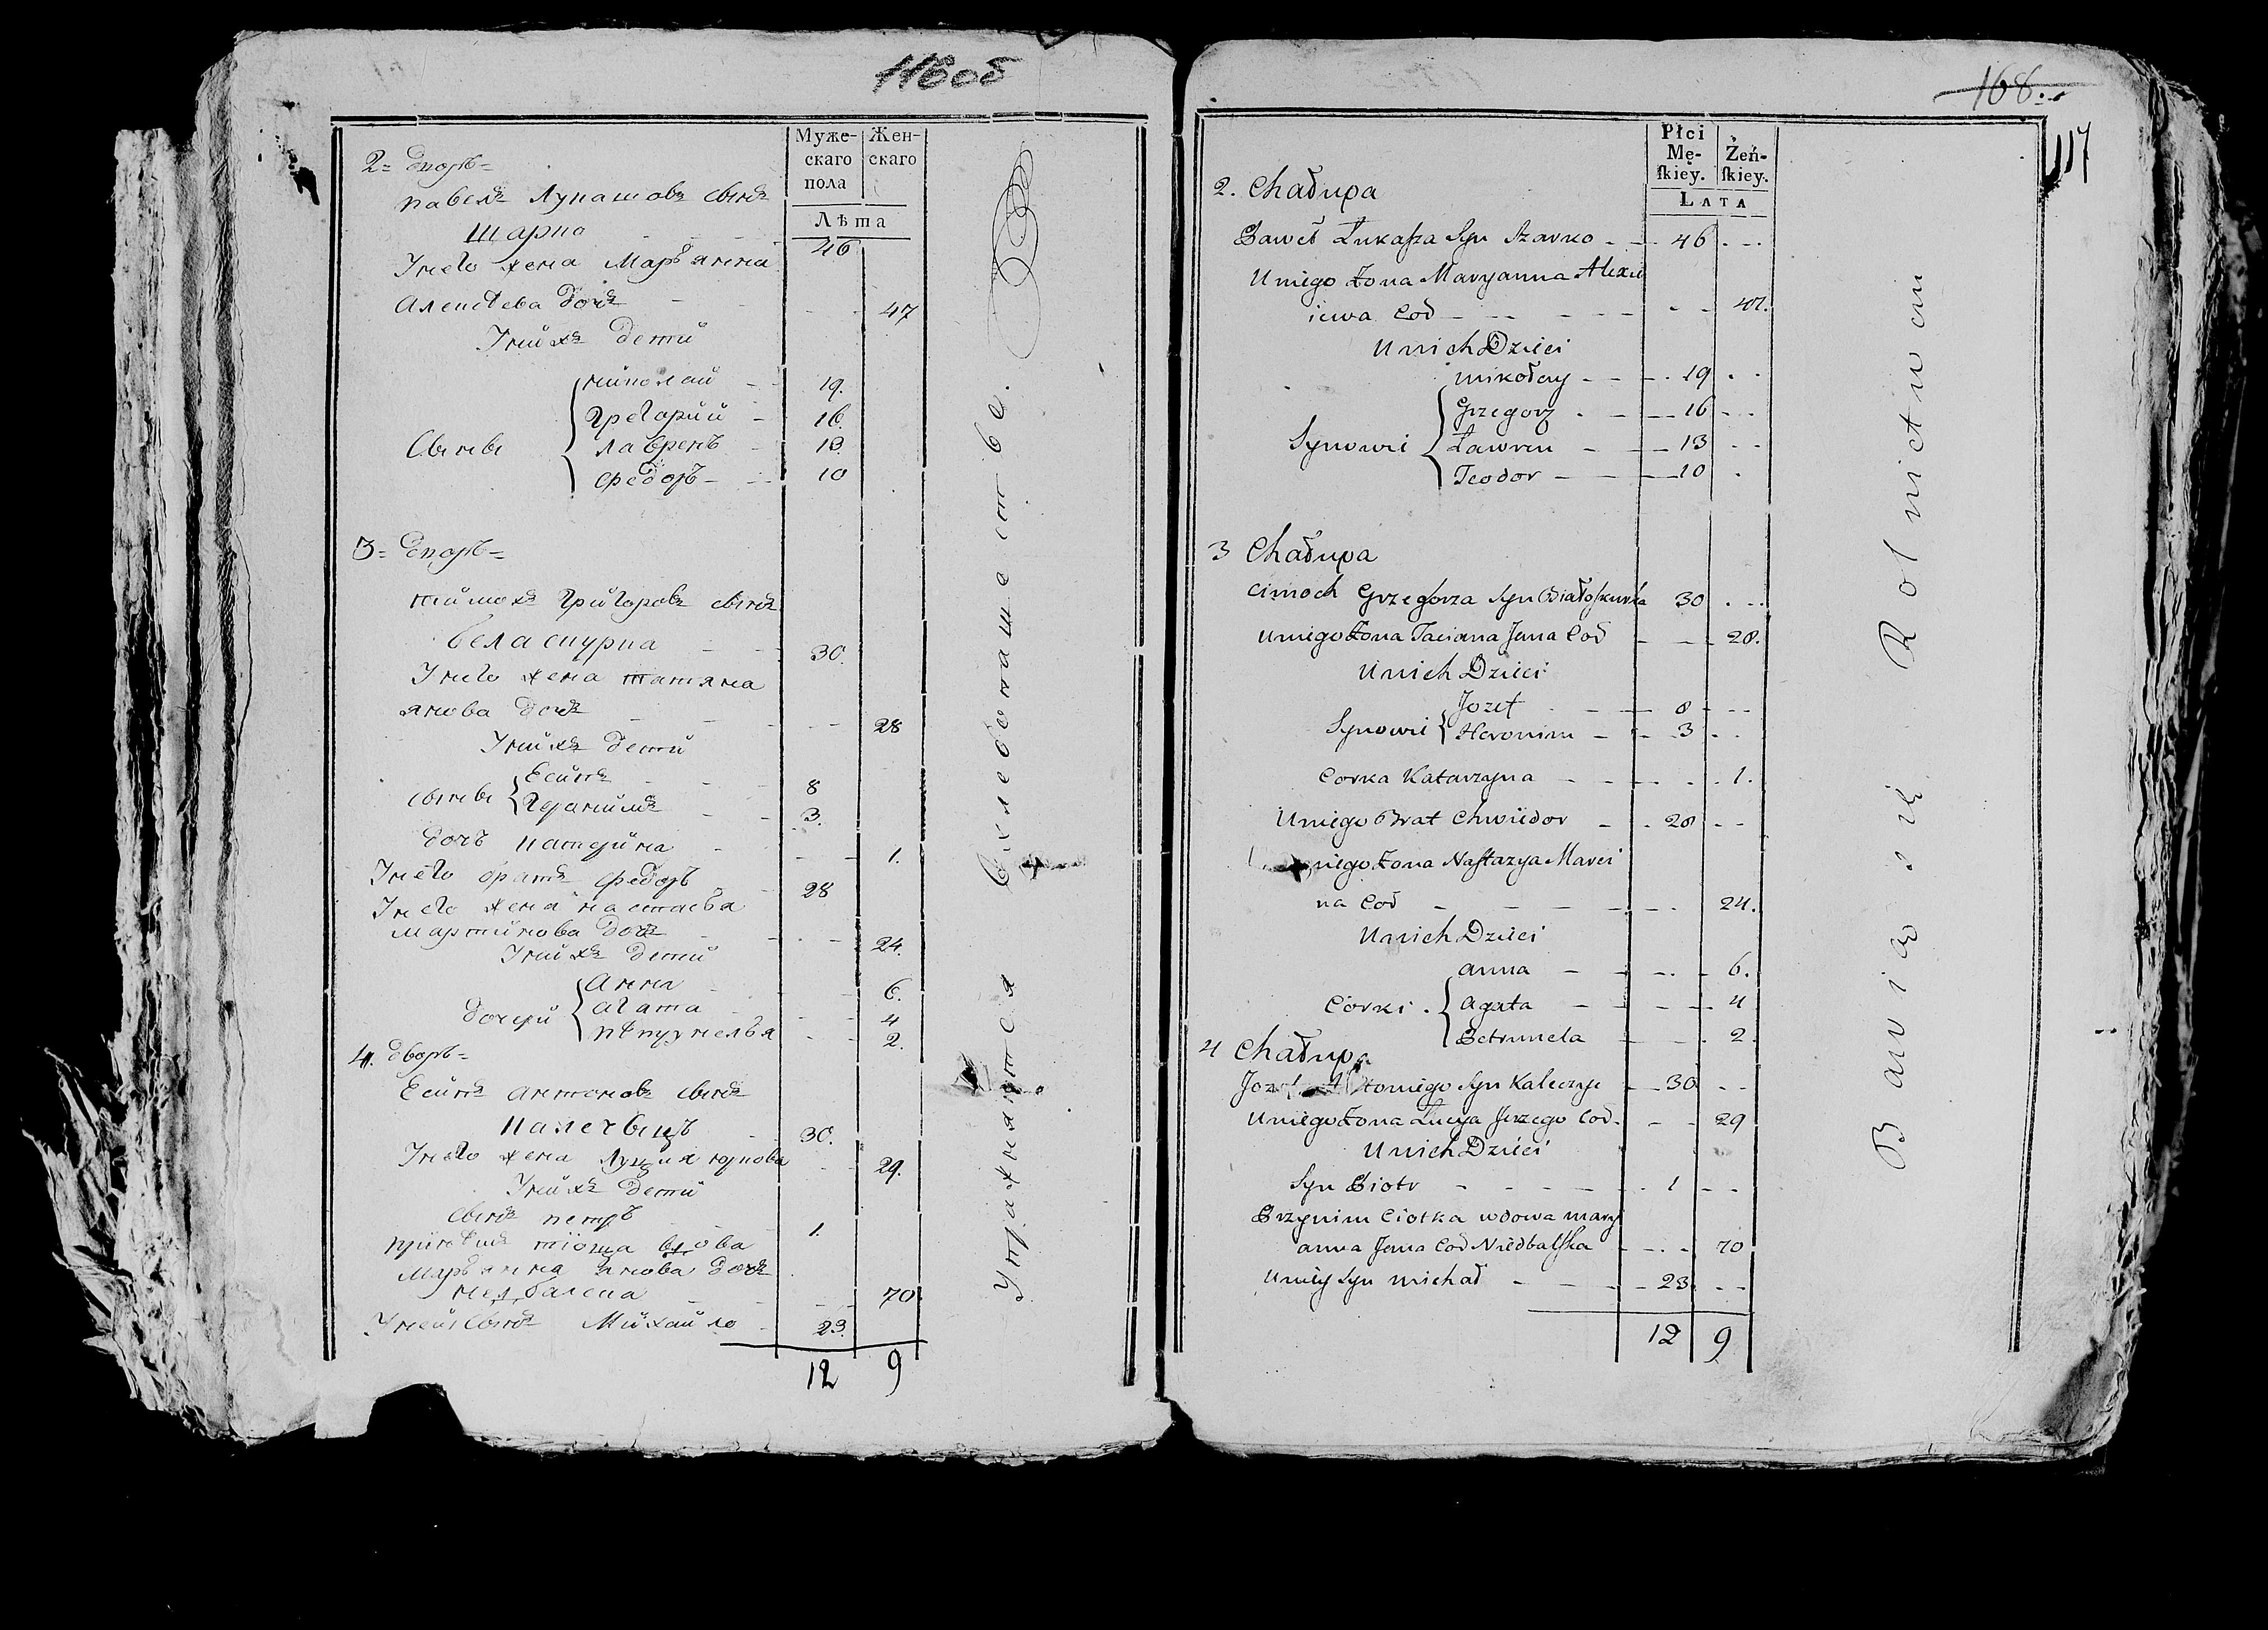 116об
Муже-
скаго
пола
Жен-
скаго
Лѣта
2= дворъ=
павелъ Лукашовъ сынъ
Шарко 46
Унего жена Марьянна
Алексеева дочь 47
Униихъ дети
Сыны
николай 19.
Грегорий 16.
лавренъ 13.
федоръ 10
3= дворъ=
тимохъ Григоровъ сынъ
беласкурка 30.
Унего жена татяна
янова дочь 28
Униихъ дети
сыны
Есипъ 8
Гераниимъ 3.
дочъ катерина 1.
Унего братъ федоръ 28
Унего жена настасья
мартинова дочъ 24.
Униихъ дети
дочери
Анна 6.
агата 4
пѣтрунелья 2.
4. дворъ=
Есипъ антоновъ сынъ
калечыцъ 30.
Унего жена Луция юркова 29.
Униихъ дети
сынъ петръ 1.
принѣмъ тіотка вдова
Марьянна янова дочъ
недбалска 70
Унеи сынъ Михайло 23.
12 9
Упражняются въ хлебопашестве.
168
117
Płci
Mę-
ſkiey.
Żeń-
ſkiey.
LATA
2. Chałupa
Paweł Łukaſza Syn Szarko 46
Uniego Żona Maryanna Alexie
iewa Cod 47.
Unich Dzieci
Synowie
Mikołay 19
Grzegorz 16
Ławren 13
Teodor 10
3 Chałupa
Cimoch Grzegorza Syn Białoſkurka 30
Uniego Żona Taciana Jana Cod 28.
Unich Dzieci
Synowie
Jozef 8
Heronim 3
Corka Katarzyna 1.
Uniego Brat Chwiedor 28
Uniego Żona Naſtazya Marci
na Cod 24.
Unich Dzieci
Corki
Anna 6.
Agata 4
Petrunela 2.
4 Chałupa
Jozef Antoniego Syn Kaleczyc 30
Uniego Żona Łucya Jerzego Cod. 29
Unich Dzieci
Syn Piotr 1
Przynim Ciotka wdowa Mary
anna Jana Cod Niedbalſka 70
Uniey Syn Michał 23
12 9
Bawią się Rolnictwem